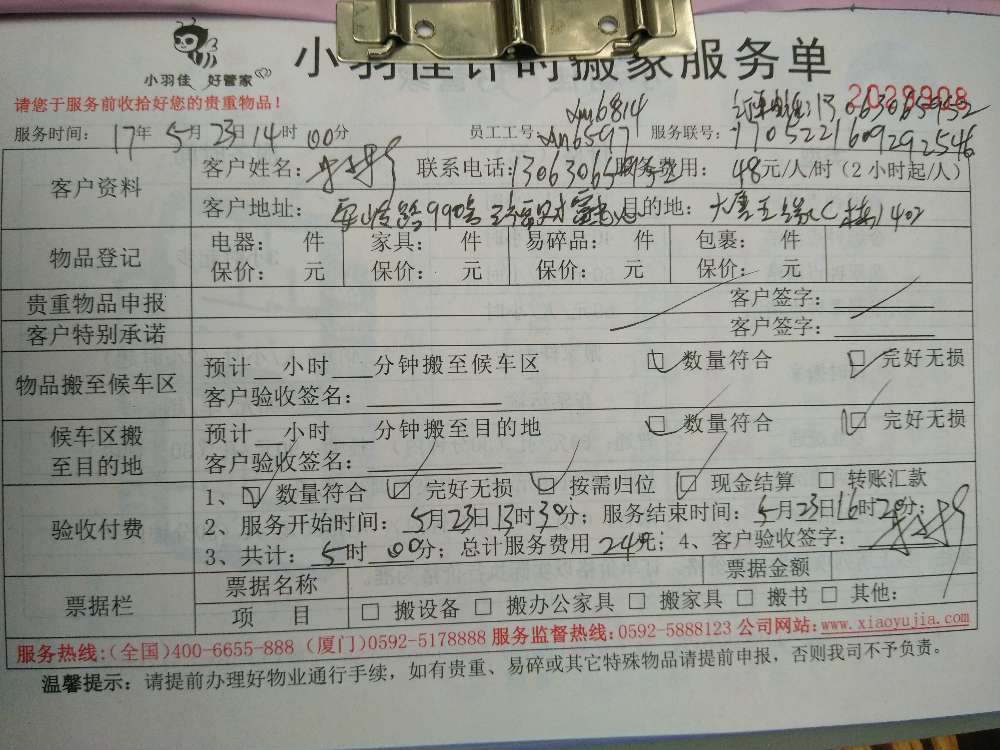 小羽佳 好管家
小羽佳计时搬家服务单
请您于服务前收拾好您的贵重物品！
2029908
服务时间： 17年 5月 23日 14时 00分 员工工号： 服务联号：
客户资料
客户姓名： 联系电话： 服务费用： 48元/人/时（2小时起/人）
客户地址： 目的地：
物品登记
电器： 件 家具： 件 易碎品： 件 包裹： 件
保价： 元 保价： 元 保价： 元 保价： 元
贵重物品申报 客户签字：
客户特别承诺 客户签字：
物品搬至候车区
预计 小时 分钟搬至候车区 数量符合 完好无损
客户验收签名：
候车区搬至目的地
预计 小时 分钟搬至目的地 数量符合 完好无损
客户验收签名：
验收付费
1、 数量符合 完好无损 按需归位 现金结算 转账汇款
2、服务开始时间： 5月23日13时30分；服务结束时间： 5月23日16时20分；
3、共计： 5时 00分；总计服务费用 240元；4、客户验收签字：
票据栏
票据名称 票据金额
项 目 搬设备 搬办公家具 搬家具 搬书 其他：
服务热线:（全国)400-6655-888 (厦门)0592-5178888 服务监督热线:0592-5888123 公司网站:www.xiaoyujia.com
温馨提示：请提前办理好物业通行手续，如有贵重、易碎或其它特殊物品请提前申报，否则我司不予负责。